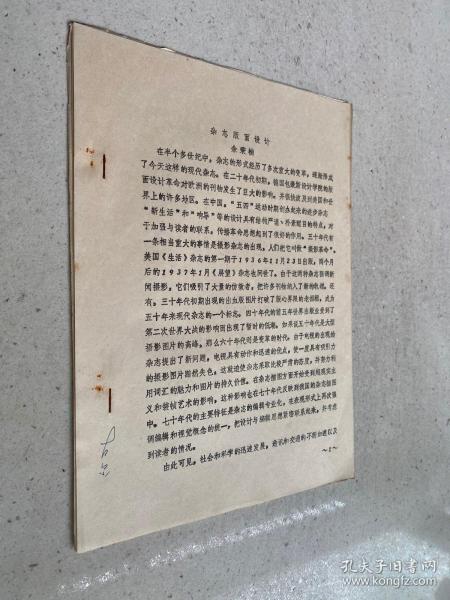 杂志版面设计
余秉楠
在半个多世纪中，杂志的形式经历了多次重大的变革，逐渐形成
了今天这样的现代杂志。在二十年代初期，德国包豪斯设计学院的版
面设计革命对欧洲的刊物发生了巨大的影响，并很快波及到美国和世
界上的许多地区。在中国，“五四”运动时期创办起来的进步杂志
“新生活”和“响导”等的设计具有结构严谨、朴素醒目的特点，对
于加强与读者的联系，传播革命思想起到了很好的作用。三十年代有
一条相当重大的事情是摄影杂志的出现，人们把它叫做“摄影革命”。
美国《生活》杂志的第一期于1936年11月23日出版，两个月
后的1937年1月《展望》杂志也问世了。由于这两种杂志强调新
闻摄影，它们吸引了大量的仿效者，把许多刊物纳入了新的轨道。还
有，三十年代初期出现的出血版图片打破了版心界限的老框框，成为
五十年来现代杂志的一个标志。四十年代的前五年世界出版业受到了
第二次世界大战的影响而出现了暂时的低潮。如果说五十年代是大型
摄影图片的高峰，那么六十年代则是变革的时代。由于电视的出现给
杂志提出了新问题，电视具有动作和迅速的优点，使一度具有吸引力
的摄影图片黯然失色，这就迫使杂志采取比较严肃的态度，并努力利
用词汇的魅力和图片的持久价值。在杂志插图方面开始受到超现实主
义和装帧艺术的影响，这种影响也在七十年代反映到我国的杂志插图
中。七十年代的主要特征是杂志的编辑专业化，在表现形式上再次强
调编辑和视觉概念的统一，把设计与编辑思想紧密联系起来，并考虑
到读者的情况。
由此可见，社会和科学的迅速发展，通讯和交通的不断加速以及
～1～
孔夫子旧书网
www.kongfz.com